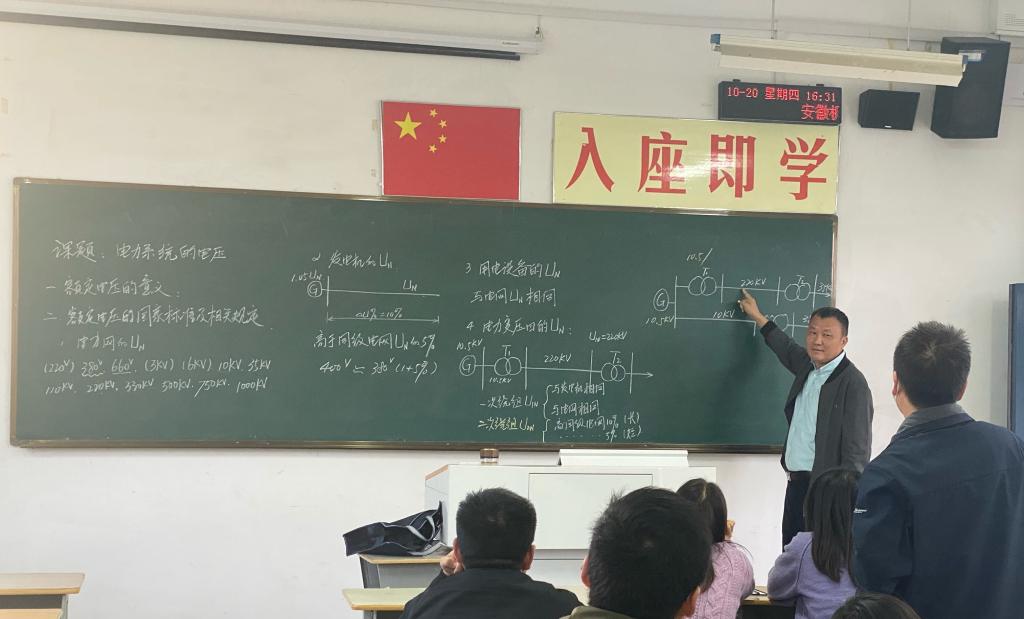 10-20 星期四 16:31
安徽
入座即学
课题：电力系统的电压
一 额定电压的意义：
二、额定电压的国家标准及相关规定
1 电力网的UN
(220V) 380V 660V. (3KV) (6KV) 10KV 35KV
110KV. 220KV. 330KV 500KV. 750KV. 1000KV
2 发电机的UN
1.05UN
G
UN
ΔU%=10%
高于同级电网UN的5%
400V ≈ 380V (1+5%)
3 用电设备的UN
与电网UN相同
4 电力变压器的UN:
UN=220KV
10.5KV
T1
220KV
T2
G
10.5KV
一次绕组U1N
与发电机相同
与电网相同
二次绕组U2N
高同级电网10% (长)
5% (短)
10.5/
T1
220KV
T2
G
10.5KV
10KV